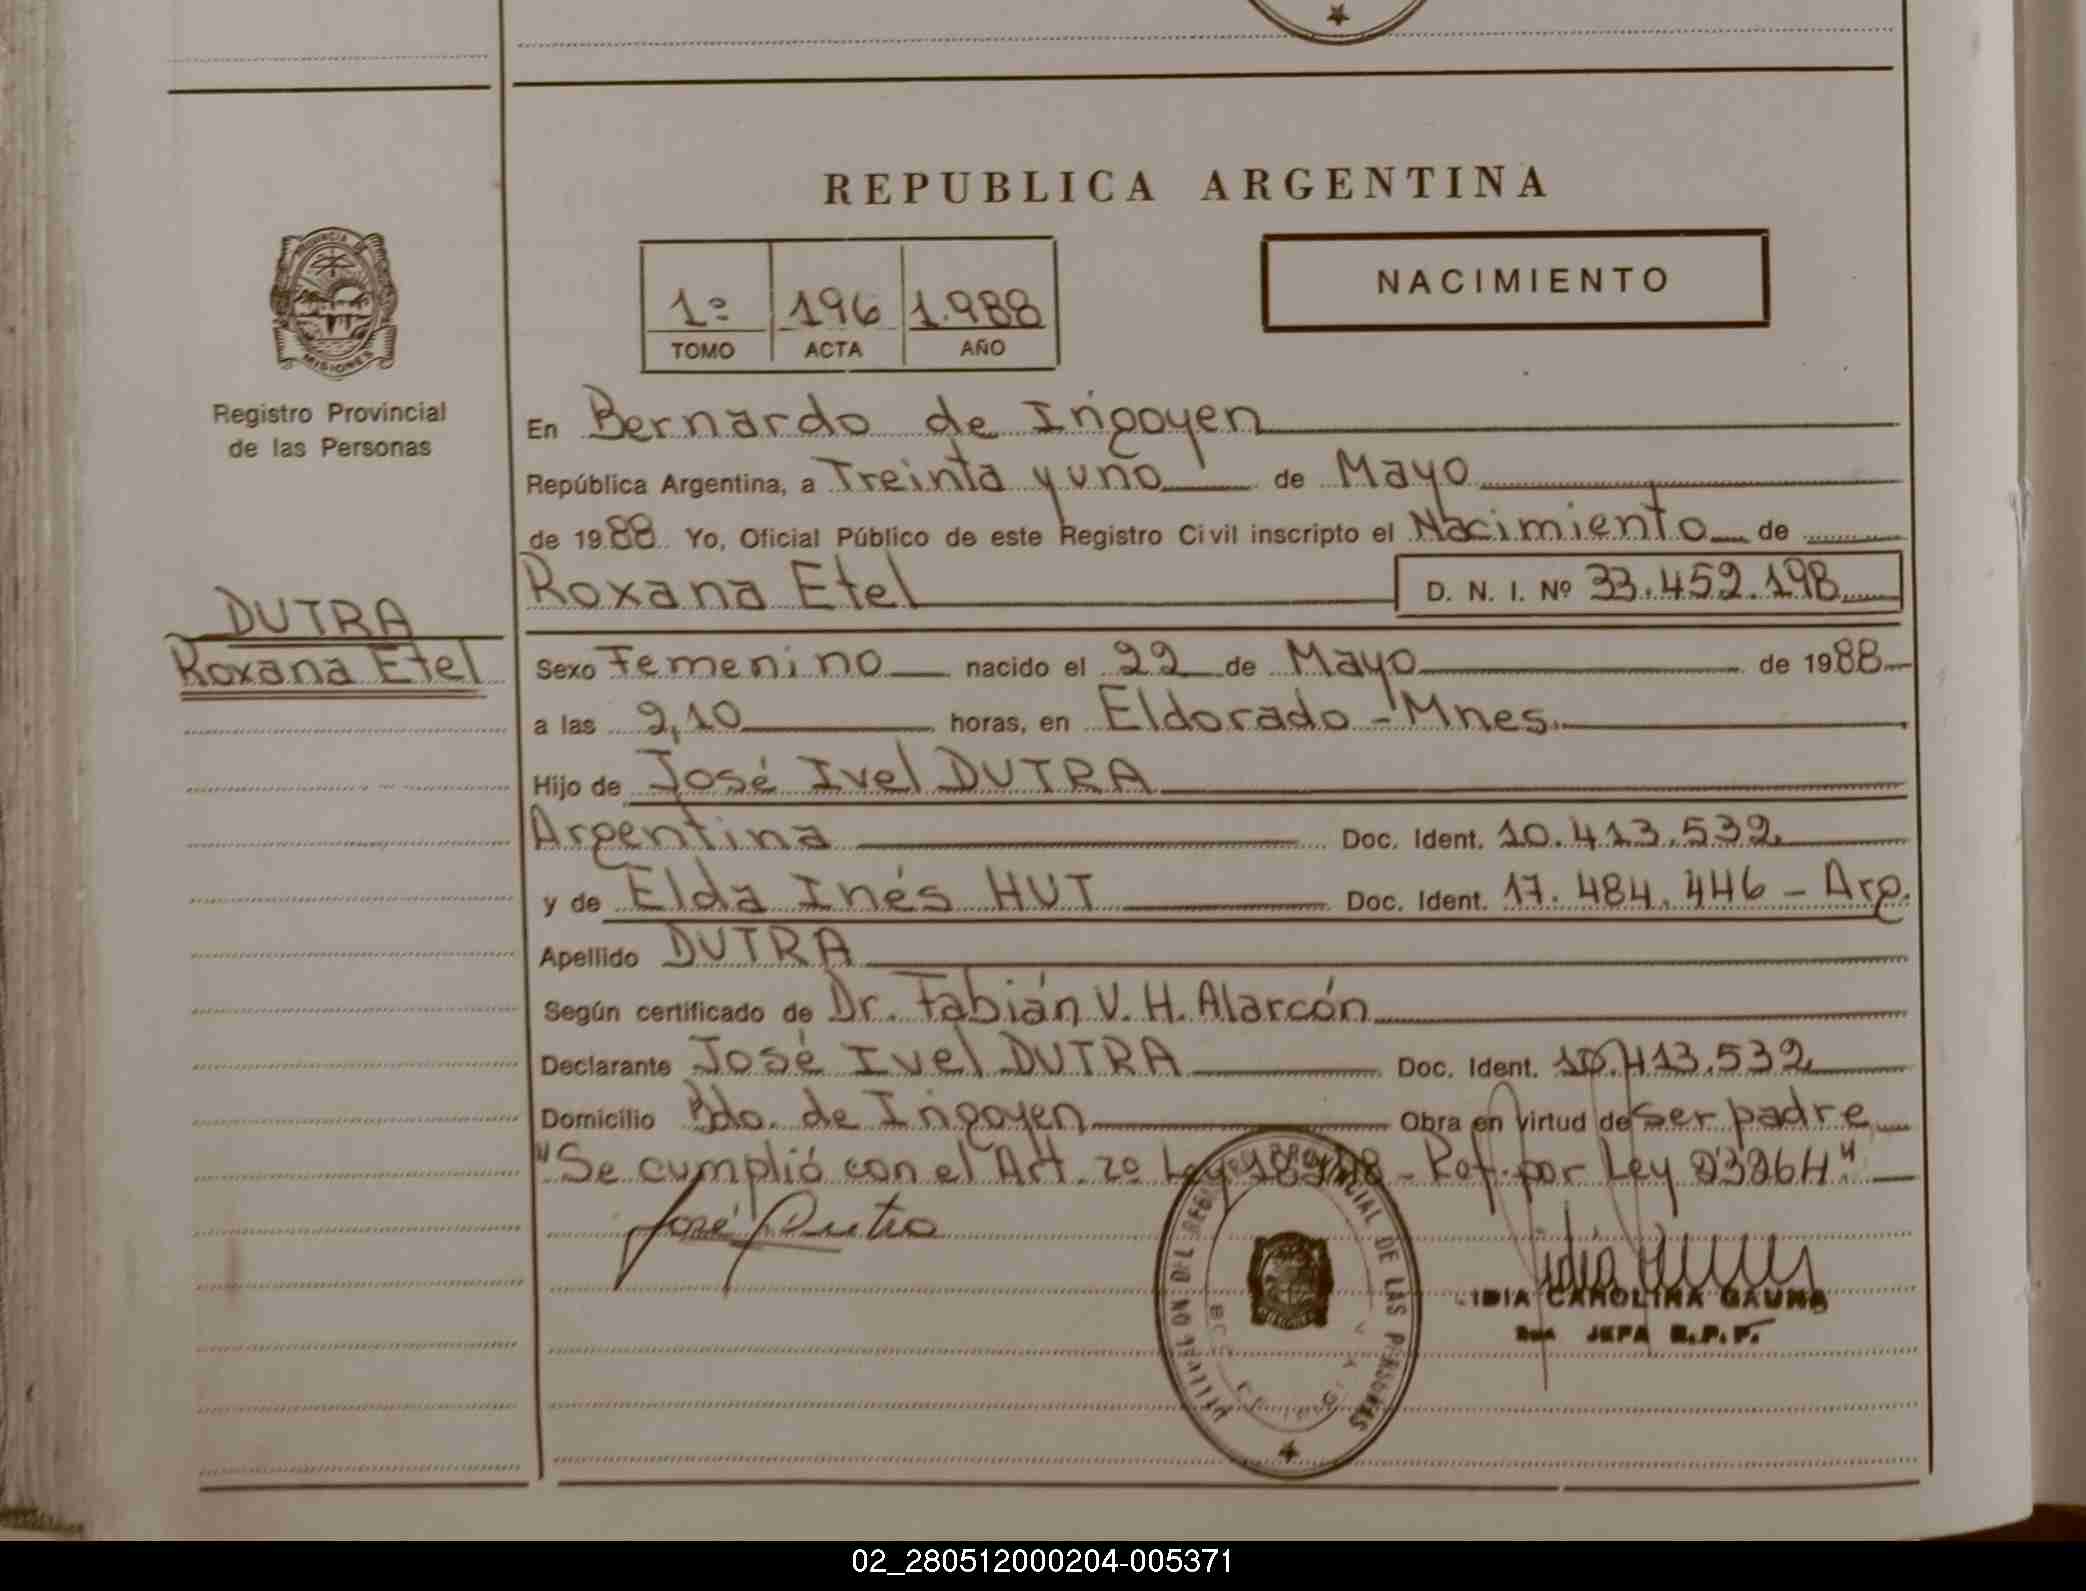 REPUBLICA ARGENTINA
PROVINCIA DE
MISIONES
Registro Provincial
de las Personas
1º 196 1.988
TOMO ACTA AÑO
NACIMIENTO
En Bernardo de Irigoyen
República Argentina, a Treinta y uno de Mayo
de 1988 Yo, Oficial Público de este Registro Civil inscripto el Nacimiento de
Roxana Etel D. N. I. Nº 33.452.198
DUTRA
Roxana Etel
Sexo Femenino nacido el 22 de Mayo de 1988
a las 2,10 horas, en Eldorado - Mnes.
Hijo de José Ivel DUTRA
Argentina Doc. Ident. 10.413.532
y de Elda Inés HUT Doc. Ident. 17.484.446 - Arg.
Apellido DUTRA
Según certificado de Dr. Fabián V. H. Alarcón
Declarante José Ivel DUTRA Doc. Ident. 10.413.532
Domicilio Bdo. de Irigoyen Obra en virtud de ser padre
"Se cumplió con el Art. 2º Ley - Rof. por Ley 23264"
José Dutra
DEL REGISTRO PROVINCIAL DE LAS PERSONAS
LIDIA CAROLINA GAUNA
JEFA R.P.P.
02_280512000204-005371